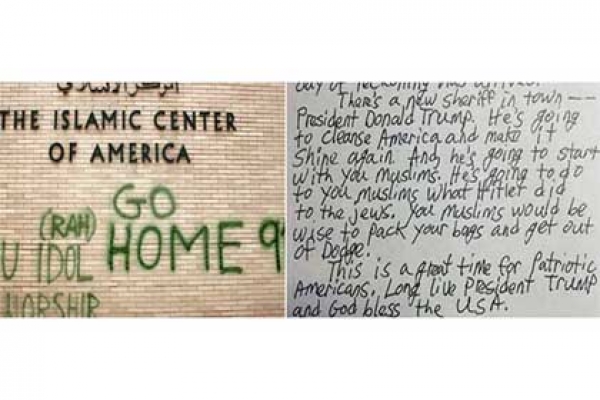 المركز الاسلامي
THE ISLAMIC CENTER
OF AMERICA
GO
HOME 9
(RAH)
U IDOL
WORSHIP
day of reckoning has arrived.
There's a new sheriff in town --
President Donald Trump. He's going
to cleanse America and make it
shine again. And, he's going to start
with you muslims. He's going to do
to you muslims what Hitler did
to the jews. You muslims would be
wise to pack your bags and get out
of Dodge.
This is a great time for Patriotic
Americans. Long live President Trump
and God bless the USA.